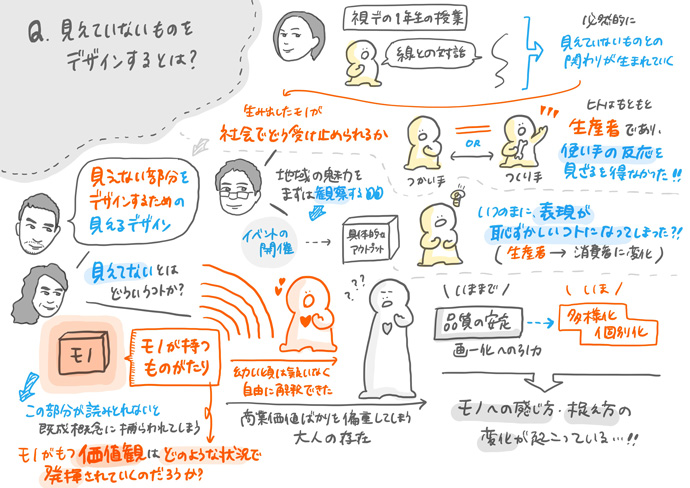 Q. 見えていないものを
デザインするとは?
視デの1年生の授業
線との対話
必然的に
見えていないものとの
関わりが生まれていく
生み出したモノが
社会でどう受け止められるか
つかい手
OR
つくり手
ヒトはもともと
生産者であり、
使い手の反応を
見ざるを得なかった!!
見えない部分を
デザインするための
見えるデザイン
地域の魅力を
まずは観察する
イベントの
開催
具体的な
アウトプット
いつのまに、表現が
恥ずかしいコトになってしまった?!
(生産者→消費者に変化)
見えてないとは
どういうコトか?
モノ
モノが持つ
ものがたり
幼い頃は気負いなく
自由に解釈できた
商業価値ばかりを偏重してしまう
大人の存在
この部分が読みとれないと
既成概念に捕らわれてしまう
モノがもつ価値観はどのような状況で
発揮されていくのだろうか?
いままで
品質の安定
画一化への引力
いま
多様化
個別化
モノへの感じ方・捉え方の
変化が起こっている…!!